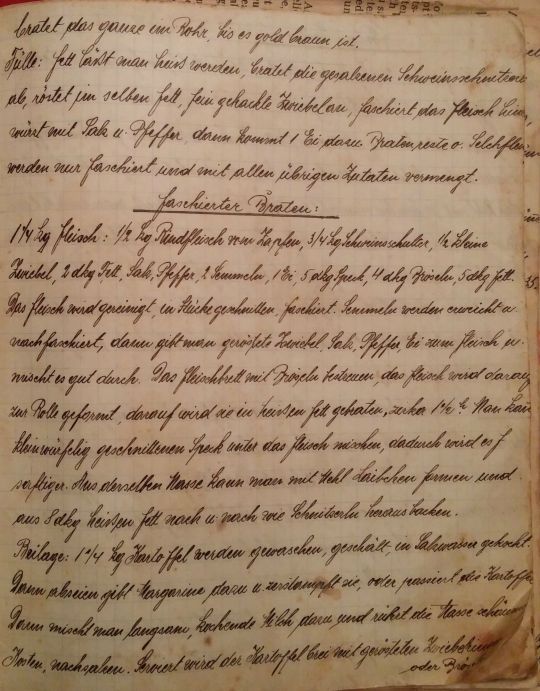 bratet das ganze im Rohr, bis es goldbraun ist.
Fülle: Fett läßt man heiß werden, bratet die gesalzenen Schweinsschnitzerl
ab, röstet im selben Fett, fein gehackte Zwiebel an, faschiert das Fleisch
würzt mit Salz u. Pfeffer, dann kommt 1 Ei dazu. Bratenreste o. Selchfleisch
werden nur faschiert und mit allen übrigen Zutaten vermengt.
Faschierter Braten:
1 1/4 kg Fleisch: 1/2 kg Rindfleisch vom Zapfen, 3/4 kg Schweinsschulter, 1/2 kleine
Zwiebel, 2 dkg Fett, Salz, Pfeffer, 2 Semmeln, 1 Ei, 5 dkg Speck, 4 dkg Bröseln, 5 dkg Fett.
Das Fleisch wird gereinigt, in Stücke geschnitten, faschiert. Semmeln werden erweicht u.
nachfaschiert, dann gibt man geröstete Zwiebel, Salz, Pfeffer, Ei zum Fleisch u.
mischt es gut durch. Das Fleischbrett mit Bröseln bestreuen, das Fleisch wird darauf
zur Rolle geformt, darauf wird sie in heißen Fett gebraten, zirka 1 1/2 h. Man kann
kleinwürfelig geschnittenen Speck unter das Fleisch mischen, dadurch wird es
saftiger. Aus derselben Masse kann man mit Mehl Laibchen formen und
aus 8 dkg heißen Fett nach u. nach wie Schnitzerln herausbacken.
Beilage: 1 1/4 kg Kartoffel werden gewaschen, geschält, in Salzwasser gekocht.
Dann abseien gibt Margarine dazu u. zerstampft sie, oder passiert die Kartoffel
Dann mischt man langsam, kochende Milch dazu und rührt die Masse schaumig
Kosten, nachsalzen. Serviert wird der Kartoffelbrei mit gerösteten
oder